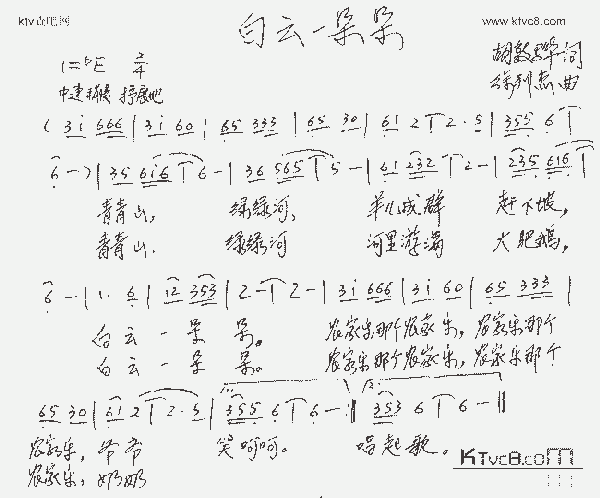 www.ktvc8.com
白云一朵朵
1=♭E 2/4
词
中速稍慢 抒展地
曲
( 3 i 666 | 3 i 60 | 65 333 | 65 30 | 61 2 | 2·5 | 355 6 |
6 -) | 35 616 | 6 - | 36 565 | 5 - | 61 232 | 2 - | 235 616 |
青青山, 绿绿河, 羊儿成群 赶下坡,
青青山. 绿绿河 河里游满 大肥鹅,
6 - | 1· 6 | 12 353 | 2 - | 2 - | 3 i 666 | 3 i 60 | 65 333 |
白云一朵朵。 农家乐那个农家乐, 农家乐那个
白云一朵朵。 农家乐那个农家乐, 农家乐那个
65 30 | 61 2 | 2·5 | 355 6 | 6 - :| 353 6 | 6 - ||
农家乐, 爷爷 笑呵呵。 唱起歌。
农家乐, 奶奶
KTvc8.com